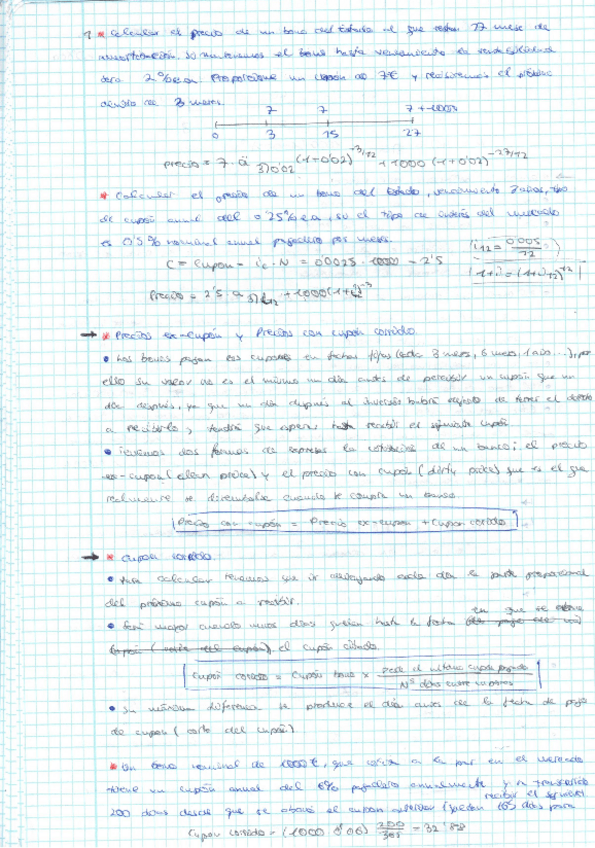 1 * Calcular el precio de un bono del Estado al que restan 27 meses de
amortización. Si mantenemos el bono hasta vencimiento la rentabilidad
será 2% e.a. Proporciona un cupón de 7€ y recibiremos el próximo
dentro de 3 meses.
7 7 7 + 1000
0 3 15 27
precio = 7 · ä 3⌉0'02 (1+0'02)^-3/12 + 1000 (1+0'02)^-27/12
* Calcular el precio de un bono del Estado, vencimiento 3 años, tipo
de cupón anual del 0'25% e.a, si el tipo de interés del mercado
es 0'5% nominal anual pagadero por meses.
i12 = 0'005/12
C = Cupón = ic · N = 0'0025 · 1000 = 2'5
(1+i) = (1+i12)^12
Precio = 2'5 · a 3⌉ + 1000(1+i)^-3
→ * Precios ex-cupón y Precios con cupón corrido.
• Los bonos pagan los cupones en fechas fijas (cada 3 meses, 6 meses, 1 año...), por
ello su valor no es el mismo un día antes de percibir un cupón que un
día después, ya que un día después el inversor habrá dejado de tener el derecho
a recibirlo y tendrá que esperar hasta recibir el siguiente cupón.
• Tenemos dos formas de expresar la cotización de un bono: el precio
ex-cupón (clean price) y el precio con cupón (dirty price) que es el que
realmente se desembolsa cuando se compra un bono.
Precio con cupón = Precio ex-cupón + Cupón corrido
→ * Cupón corrido.
• Para calcular tenemos que ir cada día la parte proporcional
del próximo cupón a recibir.
• Será mayor cuando menos días queden hasta la fecha en que se
el cupón
Cupón corrido = Cupón bono × desde el último cupón pagado / Nº días entre cupones
• Su máxima diferencia se produce el día antes de la fecha de pago
de cupón (corte del cupón)
* Un bono nominal de 1000€, que cotiza a la par en el mercado
tiene un cupón anual del 6% pagadero anualmente y ha transcurrido
200 días desde que se abonó el cupón anterior (quedan 165 días para
recibir el siguiente
Cupón corrido = (1000 · 0'06) 200/365 = 32'88